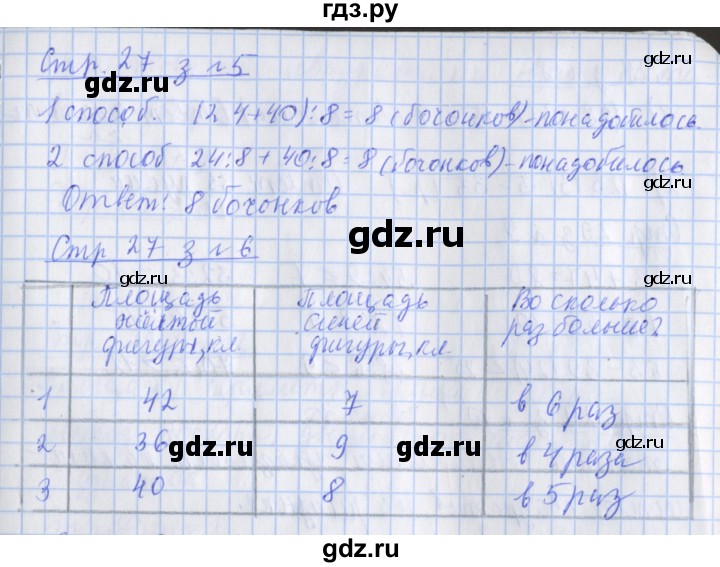 гдз.ру
Стр. 27 з № 5
gdz.ru
gdz.ru
1 способ. (24+40):8=8(бочонков)-понадобилось.
gdz.ru
gdz.ru
2 способ 24:8+40:8=8(бочонков)-понадобилось
Ответ: 8 бочонков
gdz.ru
Стр 27 з № 6
gdz.ru
gdz.ru
Площадь жёлтой фигуры, кл. Площадь синей фигуры, кл. Во сколько раз больше?
1 42 7 в 6 раз
2 36 9 в 4 раза
gdz.ru
gdz.ru
gdz.ru
3 40 8 в 5 раз
gdz.ru